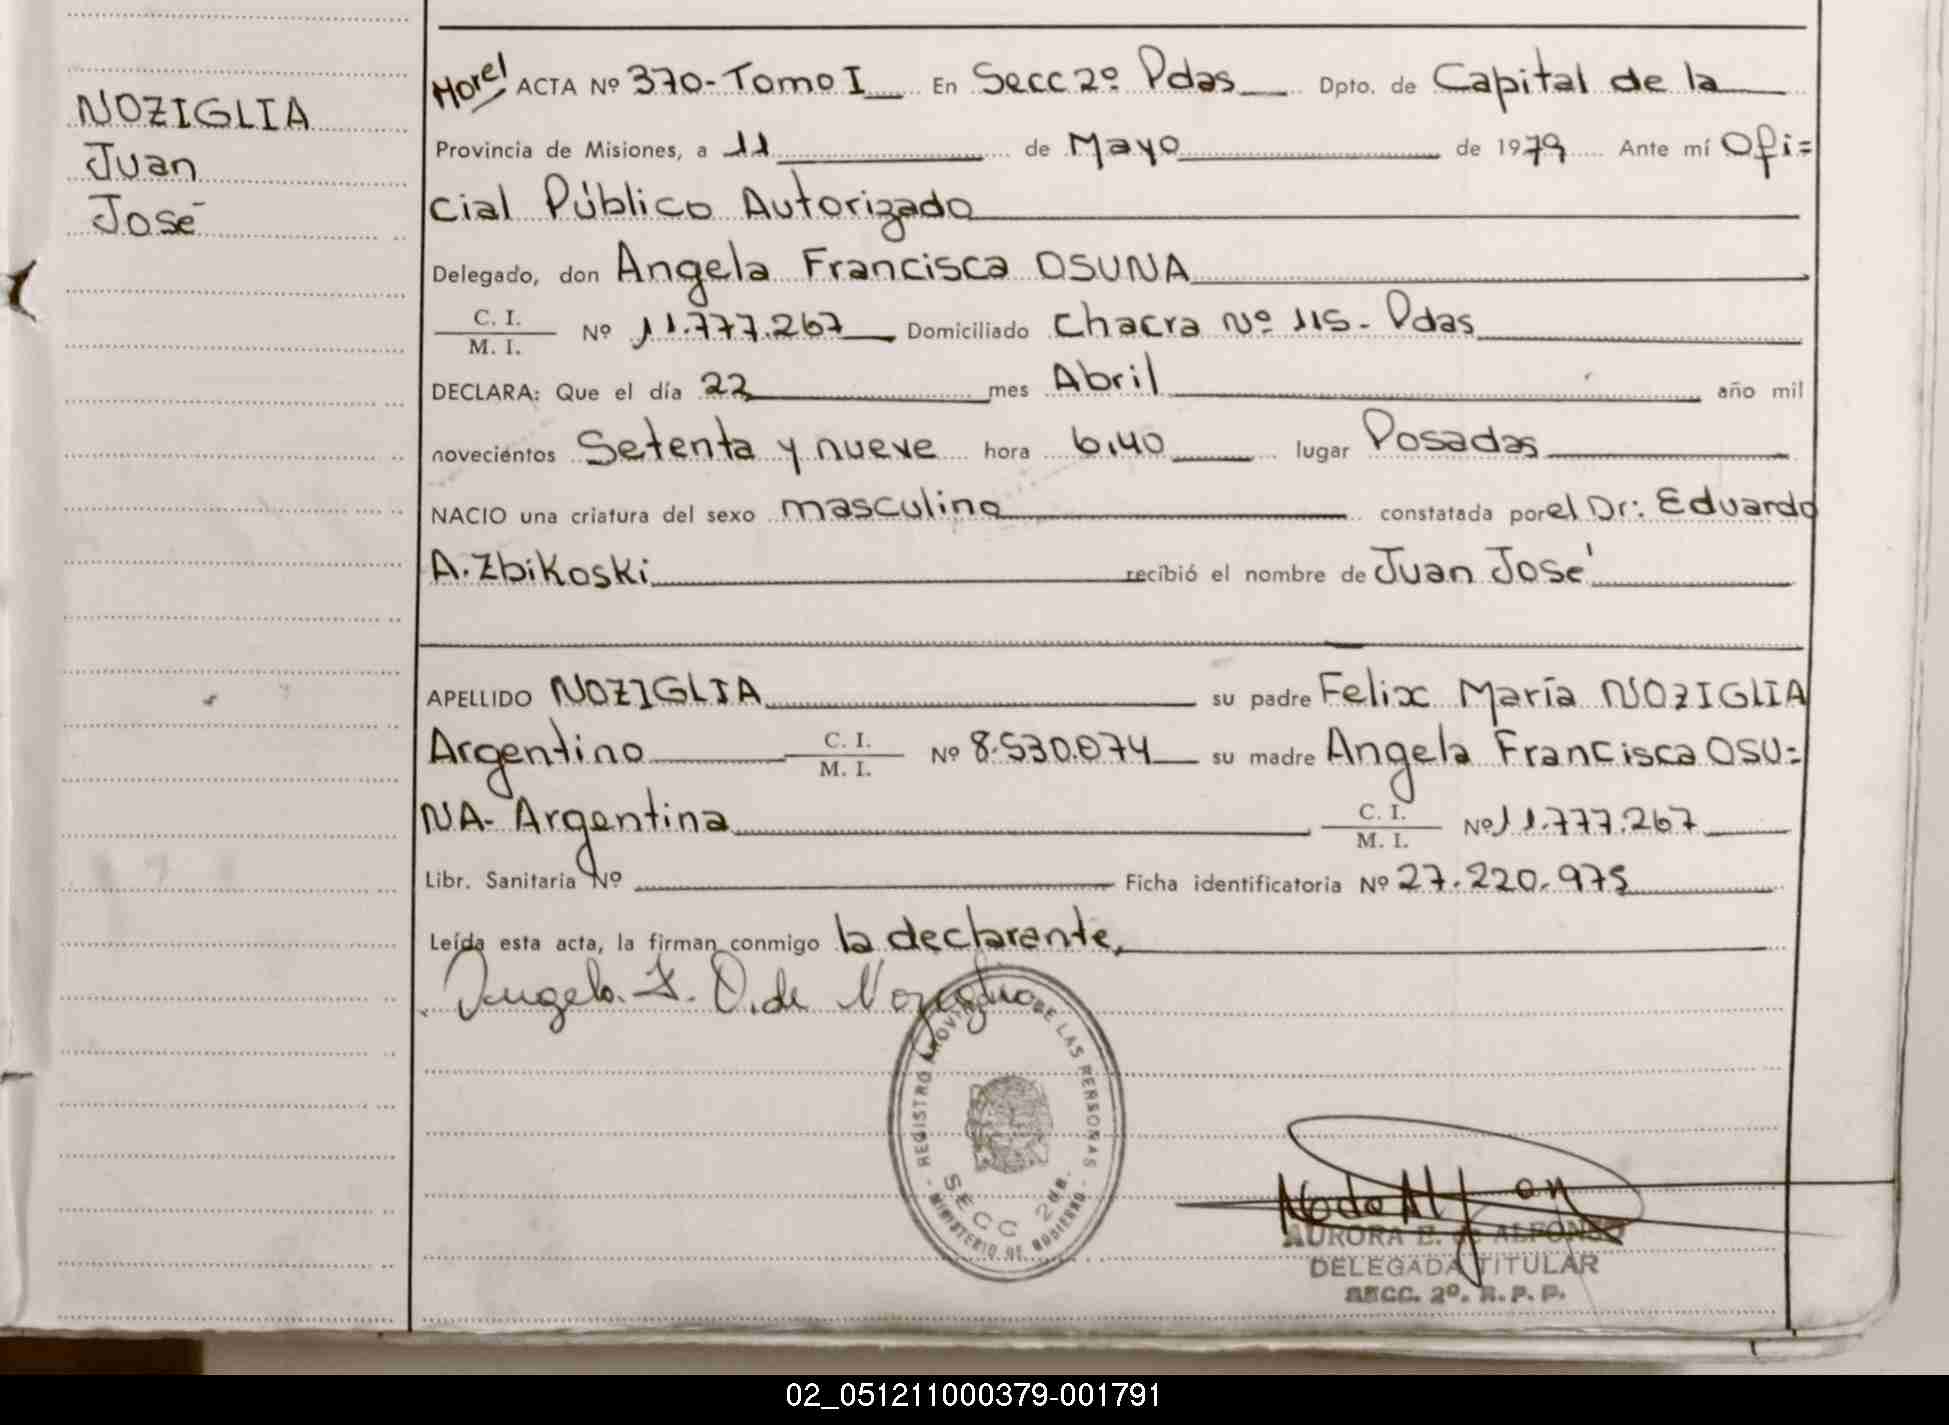 NOZIGLIA
Juan
José
Morel ACTA Nº 370-Tomo I En Secc 2º Pdas Dpto. de Capital de la
Provincia de Misiones, a 11 de Mayo de 1979 Ante mí Ofi=
cial Público Autorizado
Delegado, don Angela Francisca OSUNA
C. I.
M. I. Nº 11.777.267 Domiciliado Chacra Nº 115- Pdas
DECLARA: Que el día 22 mes Abril año mil
novecientos Setenta y nueve hora 6,40 lugar Posadas
NACIO una criatura del sexo masculino constatada por el Dr: Eduardo
A. Zbikoski recibió el nombre de Juan José
APELLIDO NOZIGLIA su padre Felix María NOZIGLIA
Argentino C. I. M. I. Nº 8.530.074 su madre Angela Francisca OSU=
NA- Argentina C. I. M. I. Nº 11.777.267
Libr. Sanitaria Nº Ficha identificatoria Nº 27.220.975
Leída esta acta, la firman conmigo la declarante,
Angela. F. O. de Noziglia
REGISTRO PROVINCIAL DE LAS PERSONAS
SECC 2da.
- MINISTERIO DE GOBIERNO -
AURORA E. de ALFONSO
DELEGADA TITULAR
SECC. 2º. R. P. P.
02_051211000379-001791